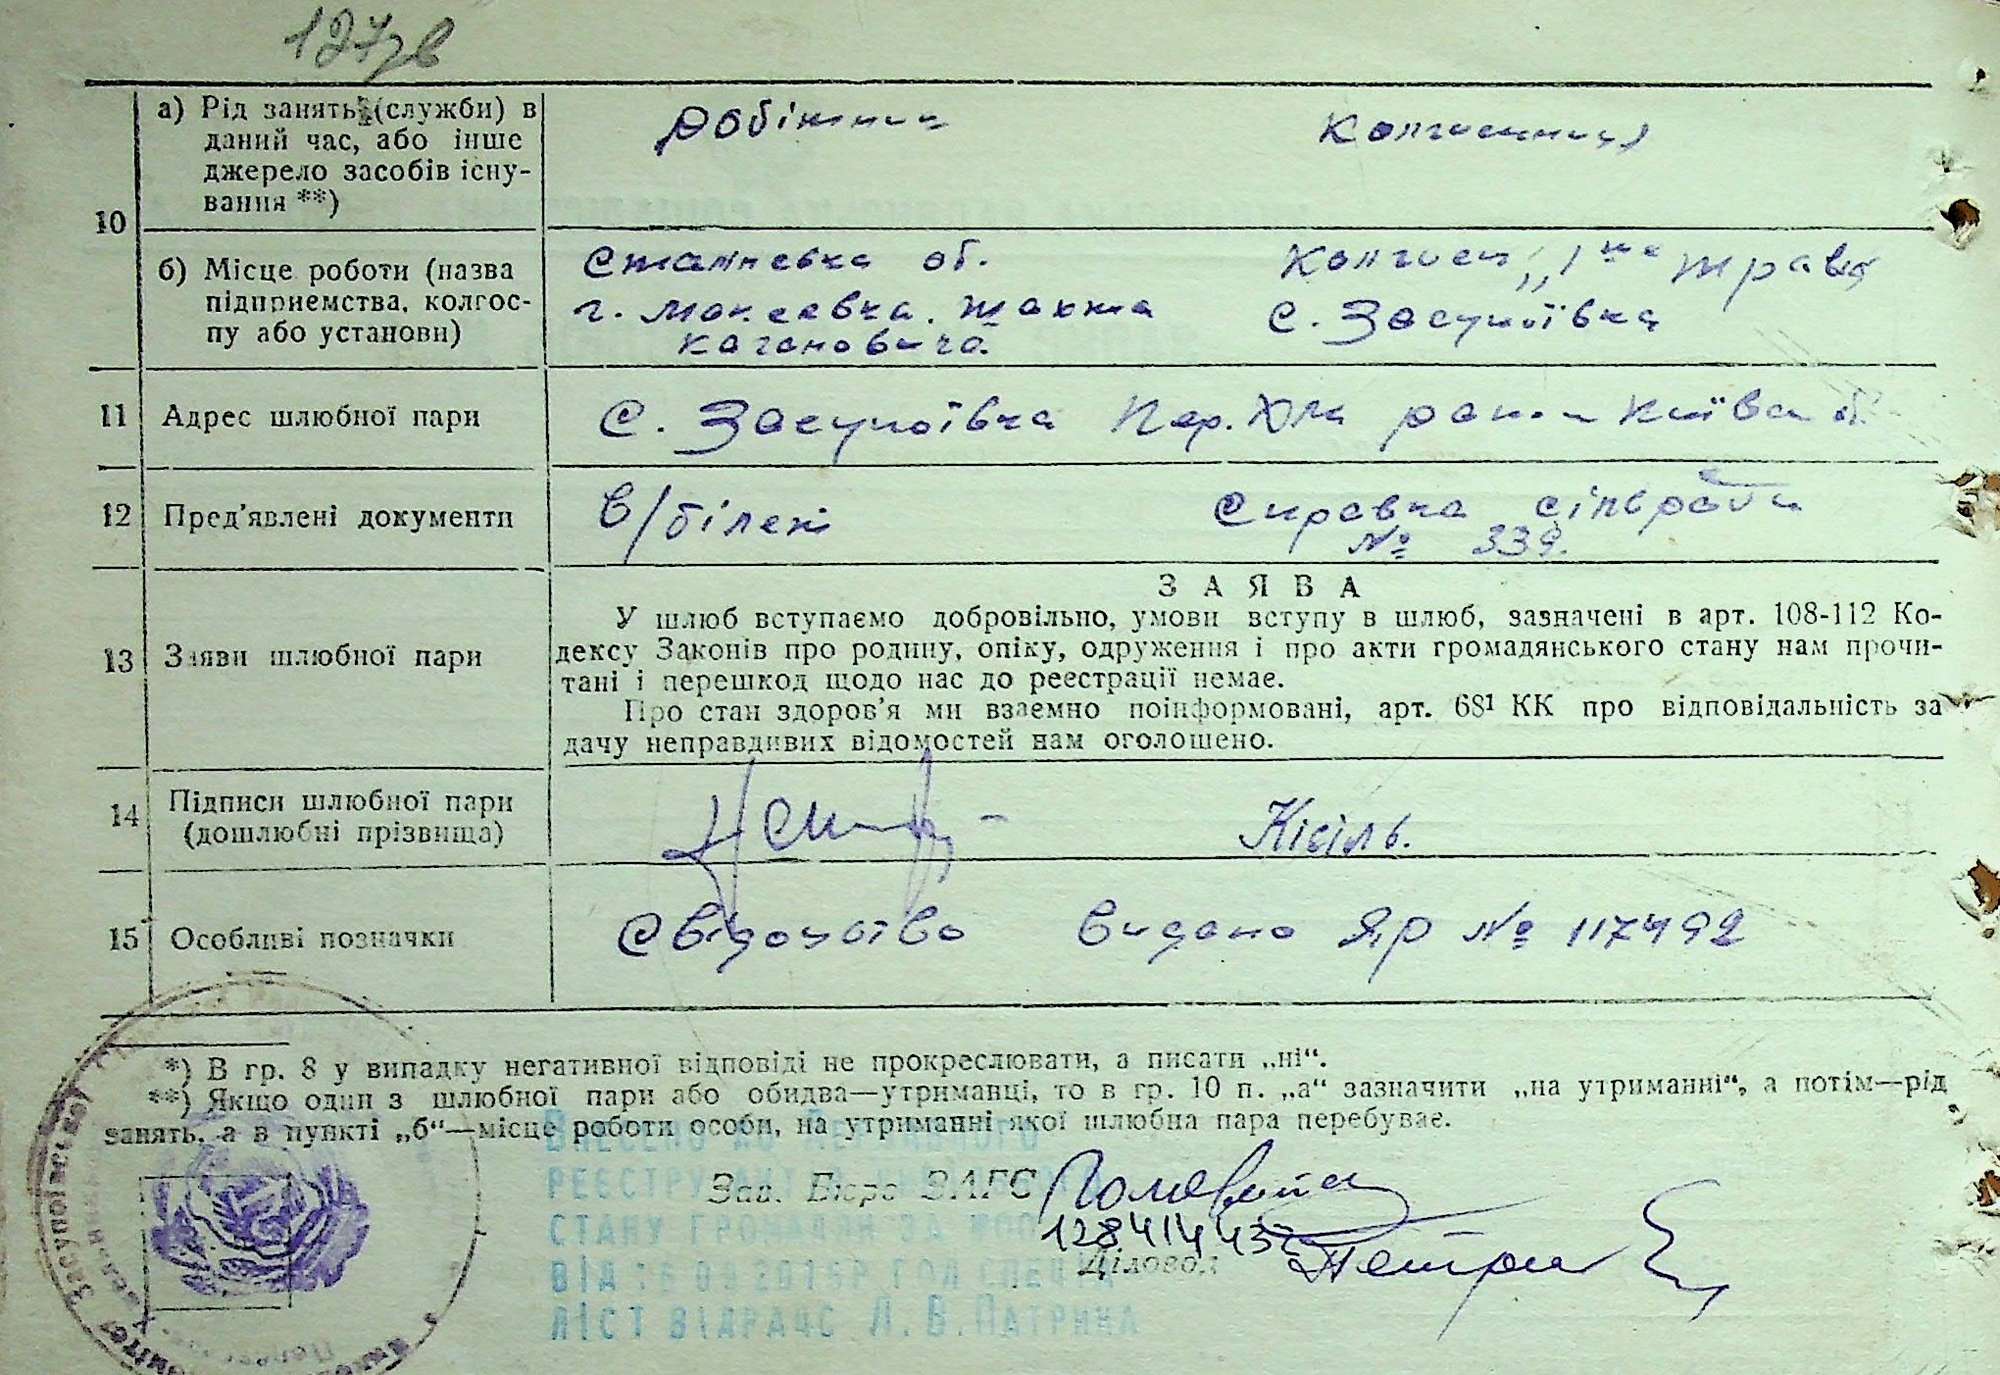 127зв
10
а) Рід занять (служби) в
даний час, або інше
джерело засобів існу-
вання **)
Робітник
Колгоспниця
б) Місце роботи (назва
підприємства, колгос-
пу або установи)
Сталінська об.
г. Макеевка. шахта
Кагановича.
Колгосп „1ше травня
с. Засупоївка
11 Адрес шлюбної пари
с. Засупоївка Пер. Хм. района Київська об.
12 Пред'явлені документи
В/білет
Справка сільради
№ 339.
13 Заяви шлюбної пари
ЗАЯВА
У шлюб вступаємо добровільно, умови вступу в шлюб, зазначені в арт. 108-112 Ко-
дексу Законів про родину, опіку, одруження і про акти громадянського стану нам прочи-
тані і перешкод щодо нас до реєстрації немає.
Про стан здоров'я ми взаємно поінформовані, арт. 68¹ КК про відповідальність за
дачу неправдивих відомостей нам оголошено.
14 Підписи шлюбної пари
(дошлюбні прізвища)
Кісіль.
15 Особливі позначки
Свідоцтво видано ЯР № 117492
*) В гр. 8 у випадку негативної відповіді не прокреслювати, а писати „ні“.
**) Якщо один з шлюбної пари або обидва—утриманці, то в гр. 10 п. „а“ зазначити „на утриманні“, а потім—рід
занять, а в пункті „б“—місце роботи особи, на утриманні якої шлюбна пара перебуває.
Внесено до Державного
реєстру актів
Зав. Бюро ЗАГС
стану громадян за №00
128414437
Діловод
від
ліст відрацс Л. В. Патрина
Засупоївської